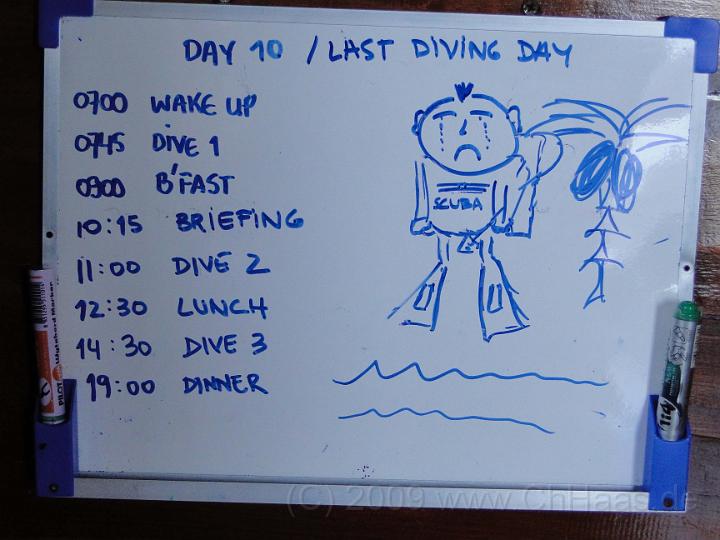 DAY 10 / LAST DIVING DAY
0700 WAKE UP
0745 DIVE 1
0900 B'FAST
10:15 BRIEFING
11:00 DIVE 2
12:30 LUNCH
14:30 DIVE 3
19:00 DINNER
SCUBA
PILOT Wyteboard Marker
(C) 2009 www.ChHaas.de